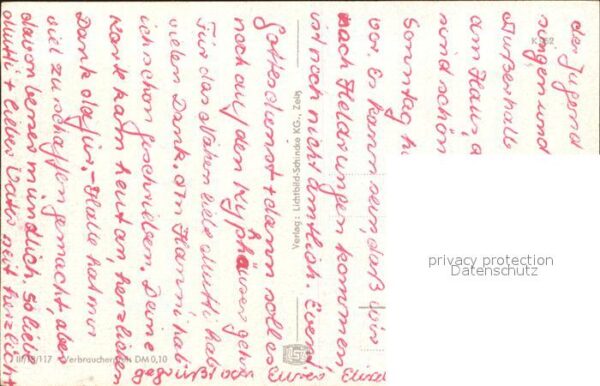 der Jugend
singen und
außerhalb
am Haus, a
sind schön
Sonntag h
vor. Es kann sein, daß wir
nach Heldrungen kommen
ist noch nicht amtlich. Erst
Gottesdienst + dann solles
noch auf den Kyphhäuser gehn
Für das Päckchen liebe Mutti hab
vielen Dank. An Hanni hab
ich schon geschrieben. Deine
Karte kam heut an, herzlichen
Dank dafür. - Halle hat mir
viel zu schaffen gemacht, aber
davon besser mündlich. So lieb
Mutti + lieber Vater seit herzlich
gegrüßt von Eurer
Verlag: Lichtbild-Schincke KG., Zeitz
Verbraucherpreis DM 0,10
privacy protection
Datenschutz